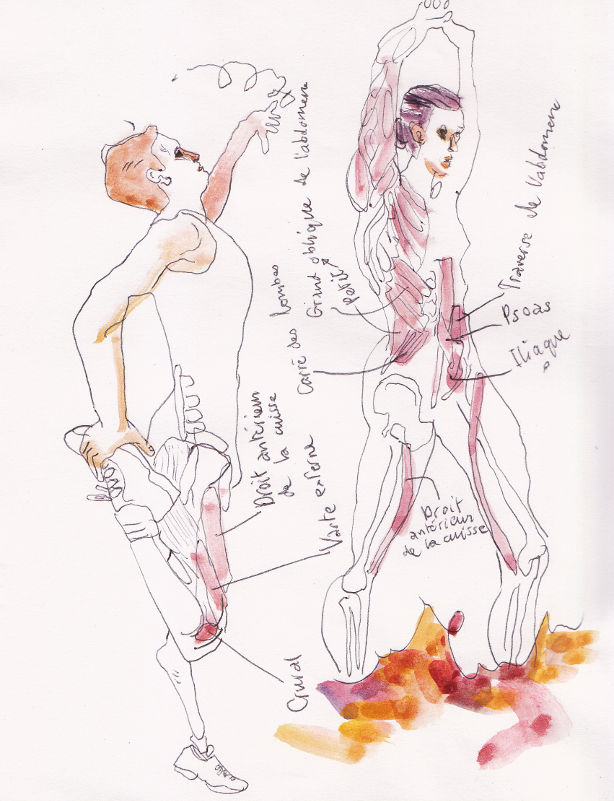 Grand oblique de l'abdomen
petit
Carré des lombes
Droit antérieur
de la cuisse
Vaste externe
Crural
Traverse de l'abdomen
Psoas
Iliaque
Droit
antérieur
de la cuisse